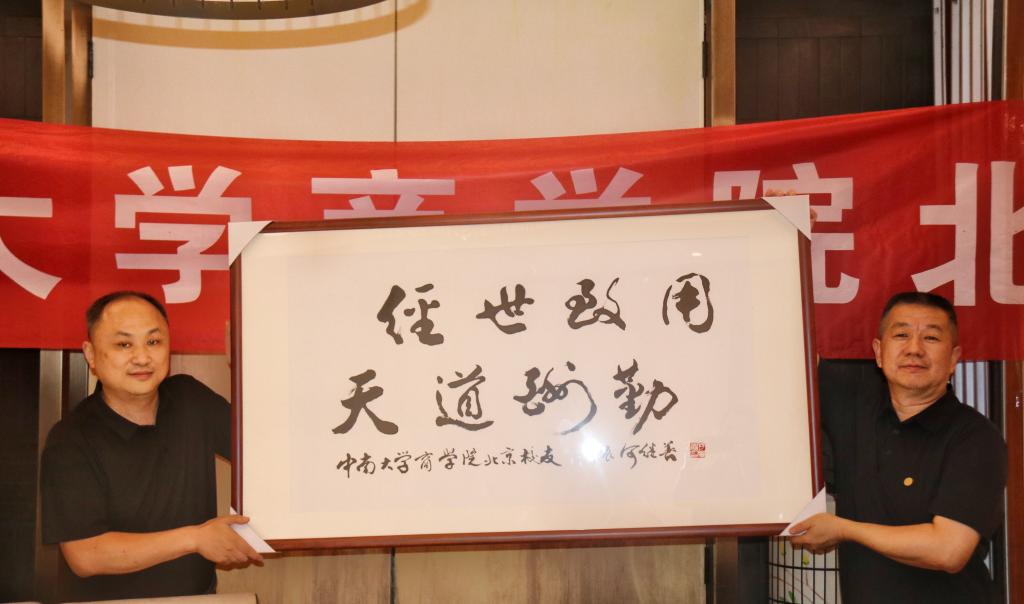 大学商学院北
經世致用
天道酬勤
中南大学商学院北京校友 何继善